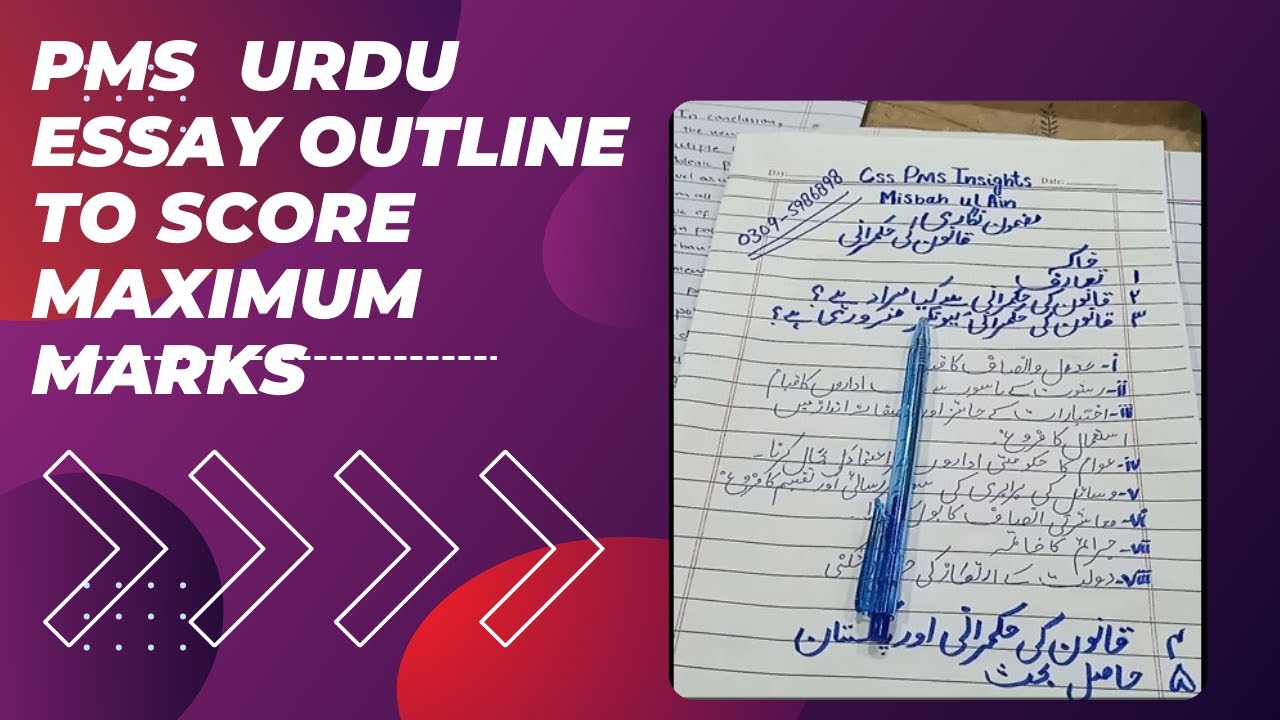 PMS URDU
ESSAY OUTLINE
TO SCORE
MAXIMUM
MARKS
In conclusion,
Day:
Css PMS Insights
Date:
Misbah ul Ain
0309-5986898
مضمون نگاری
قانون کی حکمرانی
خاکہ
۱ تعارف
۲ قانون کی حکمرانی سے کیا مراد ہے؟
۳ قانون کی حکمرانی کیونکر ضروری ہے؟
i- عدل و انصاف کا
ii- رشوت کے ناسور سے اداروں کا قیام
iii- اختیارات کے جائز اور انداز میں
استعمال کا فروغ
iv- عوام کا حکومتی اداروں پر اعتماد بحال کرنا۔
v- وسائل کی برابری کی رسائی اور تقسیم کا فروغ
vi- معاشرتی انصاف کا بول
vii- جرائم کا خاتمہ
viii- دولت کے ارتکاز کی
۴ قانون کی حکمرانی اور پاکستان
۵ حاصل بحث